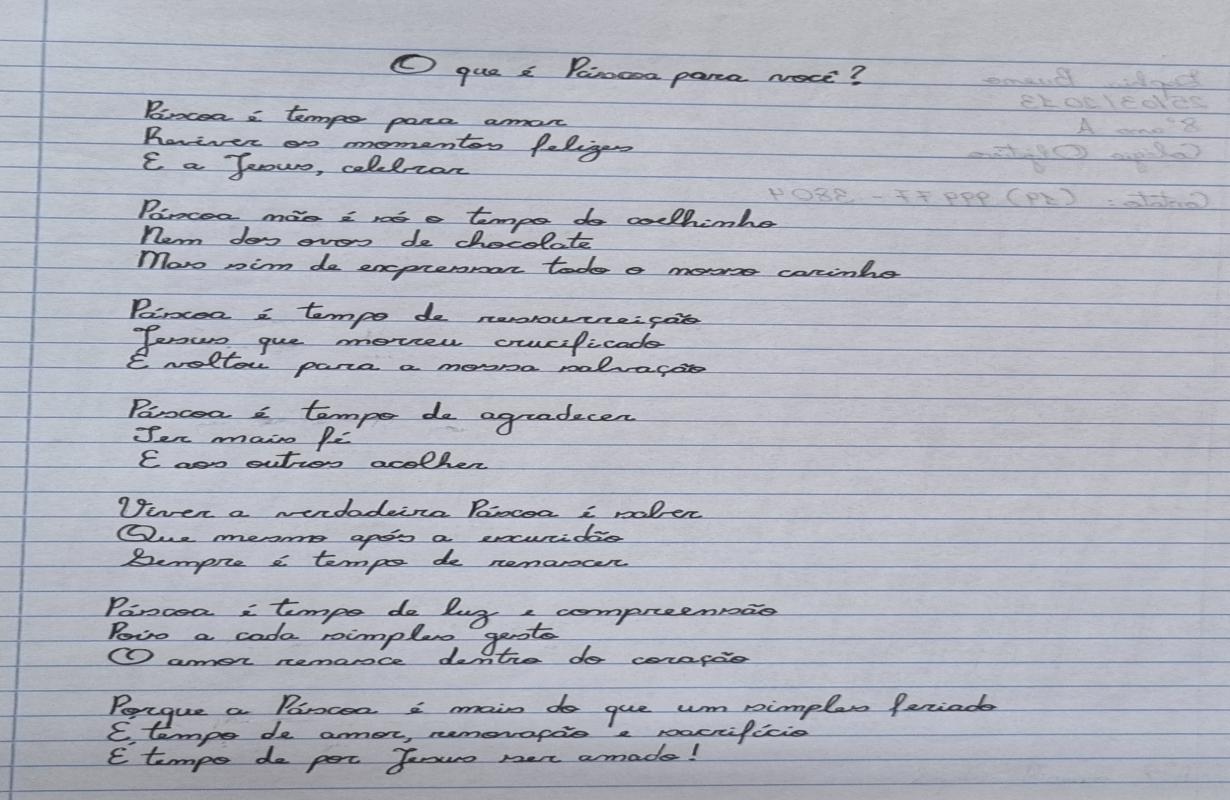 O que é Páscoa para você?
Páscoa é tempo para amar
Reviver os momentos felizes
E a Jesus, celebrar
Páscoa não é só o tempo do coelhinho
Nem dos ovos de chocolate
Mas sim de expressar todo o nosso carinho
Páscoa é tempo de ressurreição
Jesus que morreu crucificado
E voltou para a nossa salvação
Páscoa é tempo de agradecer
Ter mais fé
E aos outros acolher
Viver a verdadeira Páscoa é saber
Que mesmo após a escuridão
Sempre é tempo de renascer
Páscoa é tempo de luz e compreensão
Pois a cada simples gesto
O amor renasce dentro do coração
Porque a Páscoa é mais do que um simples feriado
É tempo de amor, renovação e sacrifício
É tempo de por Jesus ser amado!